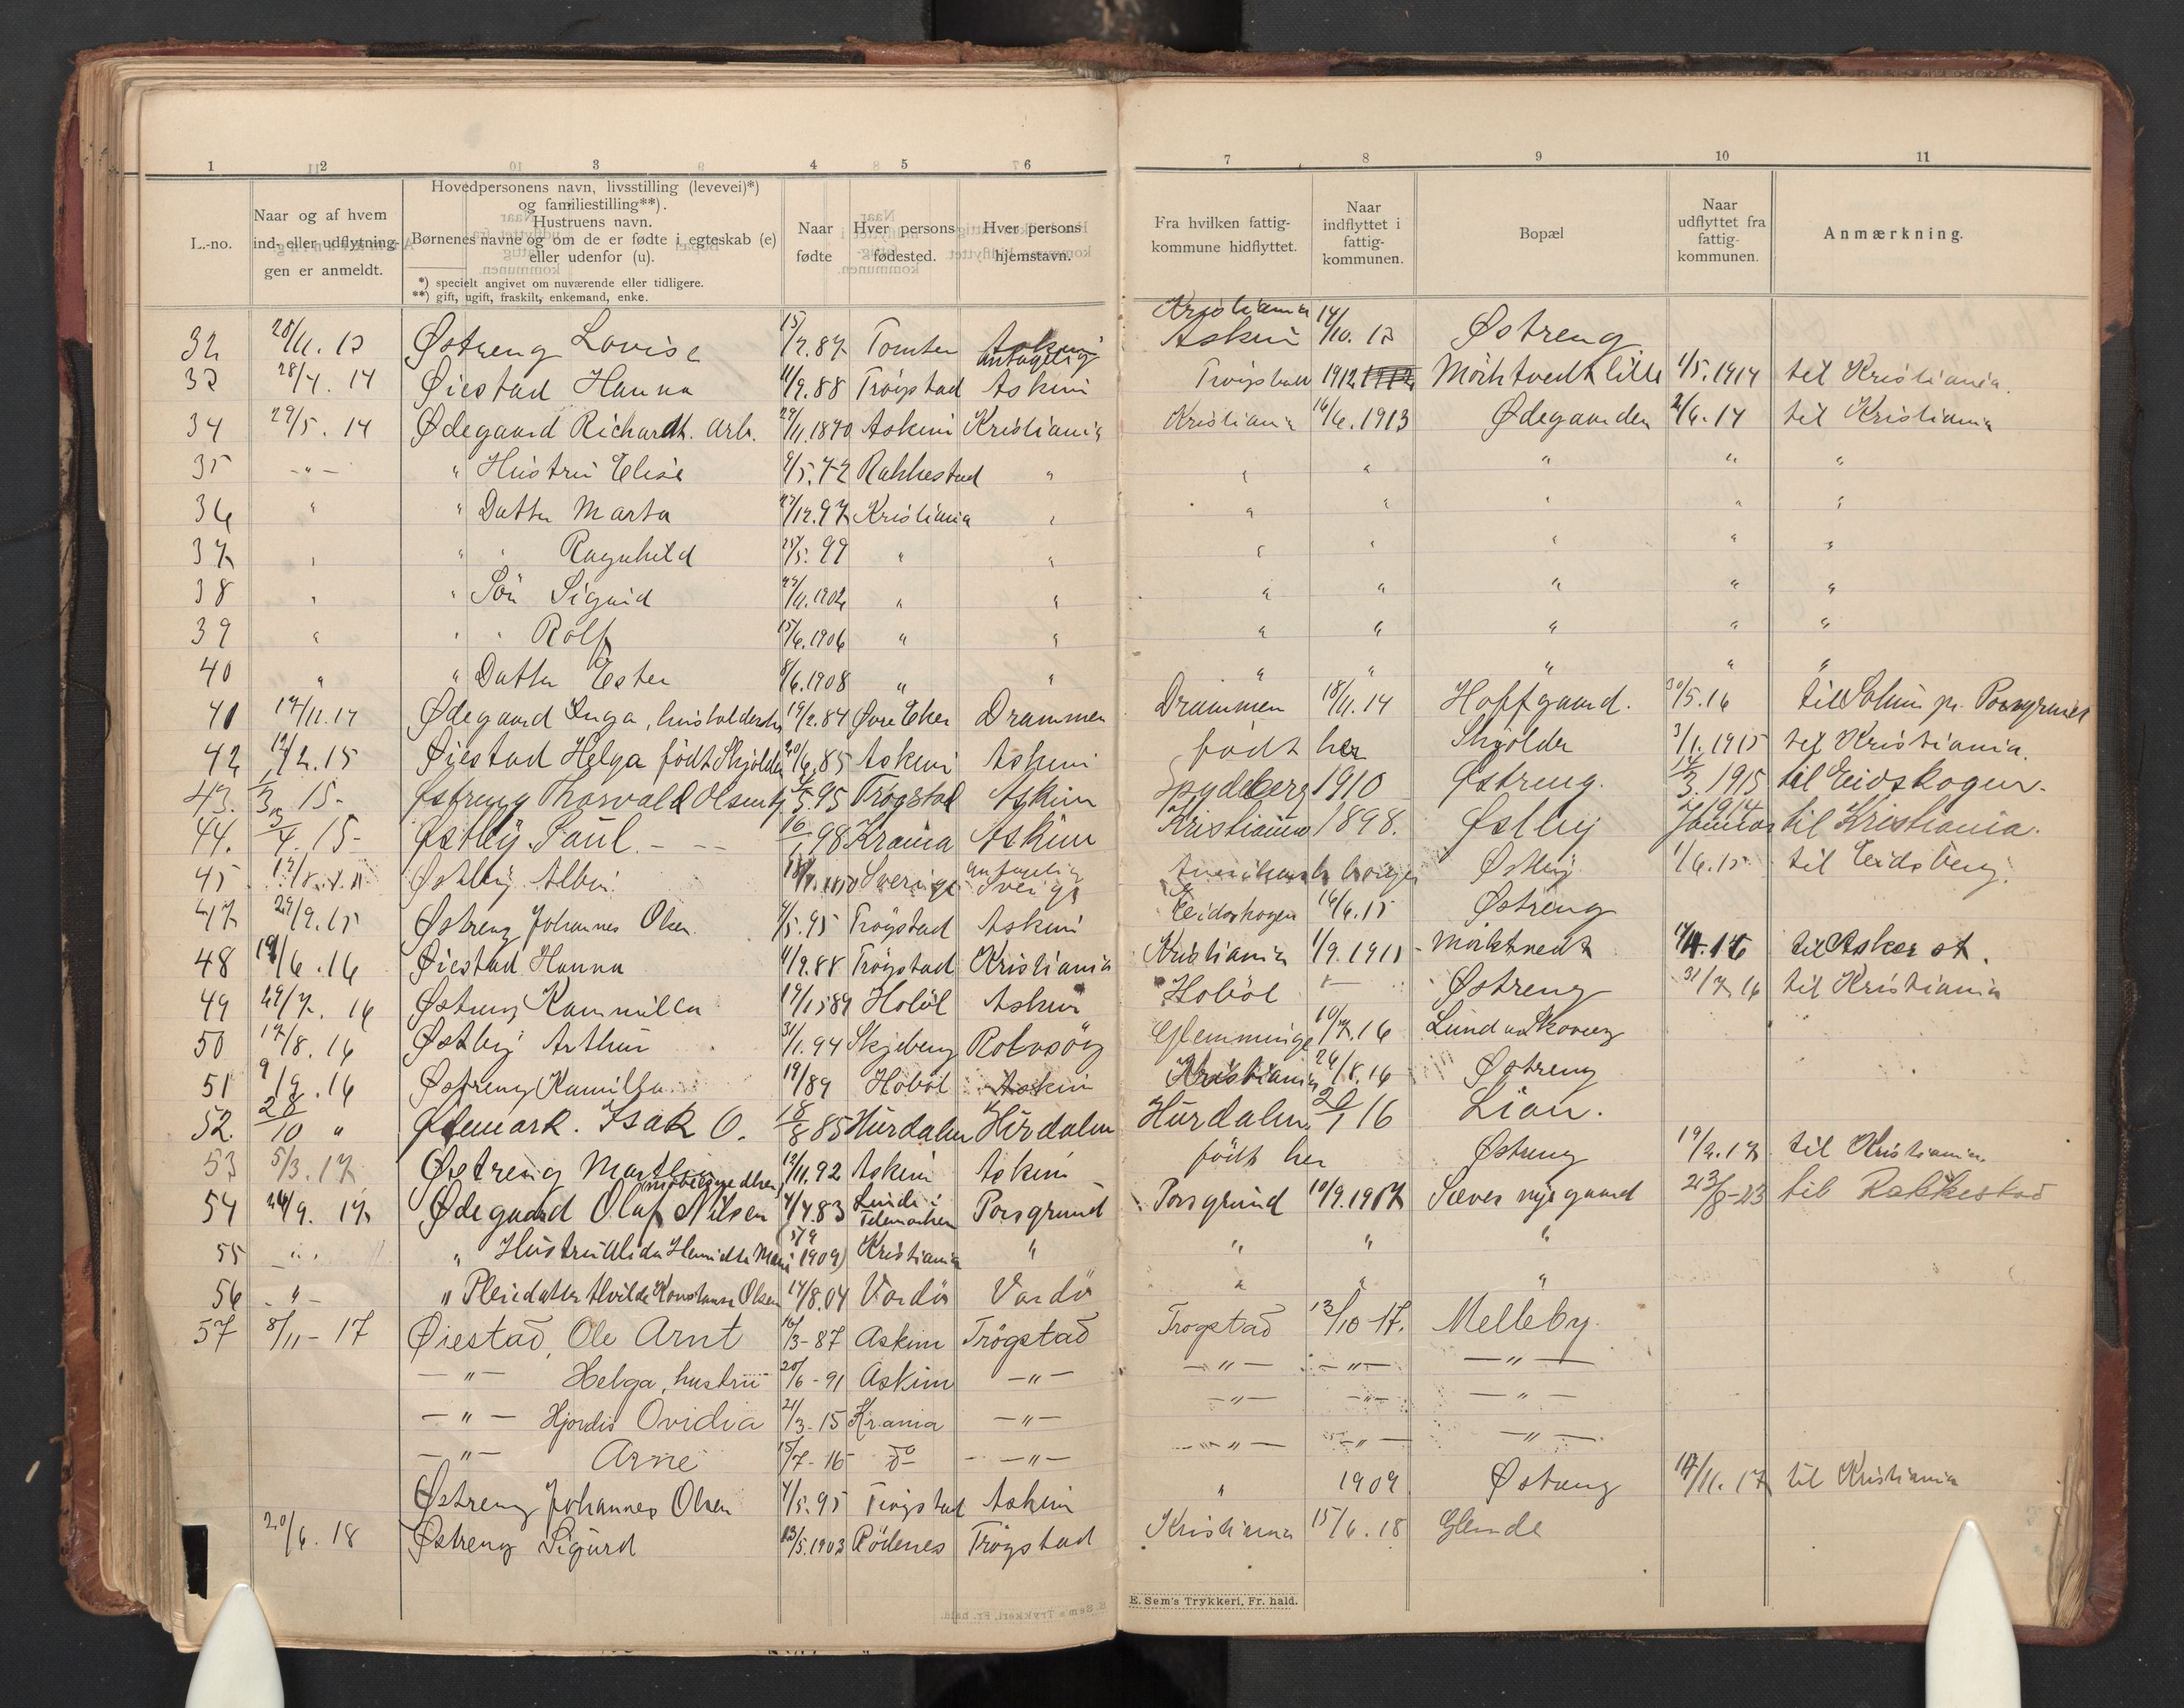 1 2 3 4 5 6 7 8 9 10 11
L.-no.
Naar og af hvem ind- eller udflytningen er anmeldt.
Hovedpersonens navn, livsstilling (levevei)*) og familiestilling**).
Hustruens navn.
Børnenes navne og om de er fødte i egteskab (e) eller udenfor (u).
*) specielt angivet om nuværende eller tidligere.
**) gift, ugift, fraskilt, enkemand, enke.
Naar fødte
Hver persons fødested.
Hver persons hjemstavn.
Fra hvilken fattigkommune hidflyttet.
Naar indflyttet i fattigkommunen.
Bopæl
Naar udflyttet fra fattigkommunen.
Anmærkning.
32 Østreng Lovise 15/2.87 Tomter Askim antagelig Kristiania Askim 14/10.13 Østreng
33 28/4.14 Øiestad Hanna 11/9.88 Trögstad Askim Trögstad 1912 Mörktvedt lille 1/5.1914 til Kristiania
34 29/5.14 Ødegaard Richardt. arb. 29/11.1870 Askim Kristiania Kristiania 16/6.1913 Ødegaarden 2/6.14 til Kristiania
35 -"- " Hustru Elise 9/5.72 Rakkestad " " " " " "
36 " " Datter Marta 27/12.97 Kristiania " " " " " "
37 " " " Ragnhild 25/5.99 " " " " " " "
38 " " Sön Sigurd " " " " " " "
39 " " " Rolf 15/6.1906 " " " " " " "
40 " " Datter Ester 8/6.1908 " " " " " " "
41 17/11.14 Ødegaard Inga, husholderske 19/2.84 Øvre Eker Drammen Drammen 18/11.14 Hoffgaard. 30/5.16 til Solum pr. Porsgrund
42 12/2.15 Øiestad Helga födt Skjölder 20/6.85 Askim Askim födt her Skjölder 3/1.1915 til Kristiania
43. 1/3 15- Østreng Thorvald Olsen 5.95 Trøgstad Askim Spydeberg 1910 Østreng. 14/3.1915 til Eidskogen.
44. 3/4.15- Østby Paul - - - 16/1 98 Krania Askim Kristiania 1898. Østby 1914 til Kristiania.
45 Østby Albin Sverige antagelig Sverige Østby 1/6.15 til Eidsberg.
47 29/9.15 Østreng Johannes Olsen. 4/5.95 Trögstad Askim Eidskogen 16/6.15 Østreng
48 19/6.16 Øiestad Hanna 11/9.88 Trögstad Kristiania Kristiania 1/9.1915 Mörktvedt til Asker st.
49 29/7.16 Østreng Kammilla Hobøl Askim Hoböl Østreng 31/7.16 til Kristiania
50 17/8.16 Østby Arthur 31/1.94 Skjeberg Rolvsöy Glemminge 10/7.16 Lund
51 9/9.16 Østreng Kamilla 19/89 Hoböl Askim Kristiania 26/8.16 Østreng
52. 28/10 " Ødemark. Isak O. 18/8 85 Hurdalen Hurdalen Hurdalen 20/1 16 Lian.
53 5/3.17 Østreng 12/11.92 Askim Askim födt her Østreng 19/2.17 til Kristiania
54 26/9.17 Ødegaard Olaf Nilsen 4/4.83 Lunde i Telemarken Porsgrund Porsgrund 10/9.1917 Sæves nyegaard 23/8-23 til Rakkestad
55 " " Hustru Kristiania " " " "
56 -"- " Pleiedatter Alvilde Konstanse Olsen 14/8.04 Vardö Vardö " " "
57 8/11-17 Øiestad, Ole Arnt 16/3-87 Askim Trögstad Trøgstad 13/10-17. Melleby.
-"- Helga, hustru 20/6-91 Askim -"- -"- -"- -"-
-"- Hjordis Ovidia 21/3-15 Krania -"- -"- -"- -"-
-"- Arne 15/7-16 do -"- -"- -"- -"-
Østreng Johannes Olsen 4/5.95 Trögstad Askim " 1909 Østreng 17/11.17 til Kristiania
20/6.18 Østreng Sigurd 13/5.1903 Rödenes Trögstad Kristiania 15/6.18 Glende
E. Sem's Trykkeri, Fr. hald.